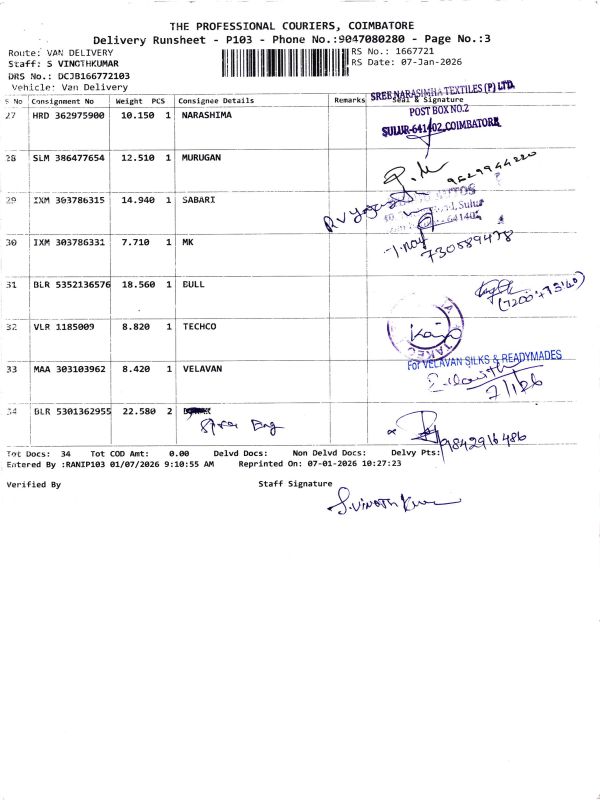 THE PROFESSIONAL COURIERS, COIMBATORE
Delivery Runsheet - P103 - Phone No.:9047080280 - Page No.:3
Route: VAN DELIVERY
RS No.: 1667721
Staff: S VINOTHKUMAR
RS Date: 07-Jan-2026
DRS No.: DCJB166772103
Vehicle: Van Delivery
S No Consignment No Weight PCS Consignee Details Remarks Seal & Signature
SREE NARASIMHA TEXTILES (P) LTD.
POST BOX NO.2
SULUR-641402, COIMBATORE
27 HRD 362975900 10.150 1 NARASHIMA
28 SLM 386477654 12.510 1 MURUGAN
9629944220
29 IXM 303786315 14.940 1 SABARI
Sulur
641402
30 IXM 303786331 7.710 1 MK
730589478
31 BLR 5352136576 18.560 1 BULL
(7200+7340)
32 VLR 1185009 8.820 1 TECHCO
33 MAA 303103962 8.420 1 VELAVAN
For VELAVAN SILKS & READYMADES
7/1/26
34 BLR 5301362955 22.580 2
9842916486
Tot Docs: 34 Tot COD Amt: 0.00 Delvd Docs: Non Delvd Docs: Delvy Pts:
Entered By :RANIP103 01/07/2026 9:10:55 AM Reprinted On: 07-01-2026 10:27:23
Verified By Staff Signature
S.Vinoth Kumar